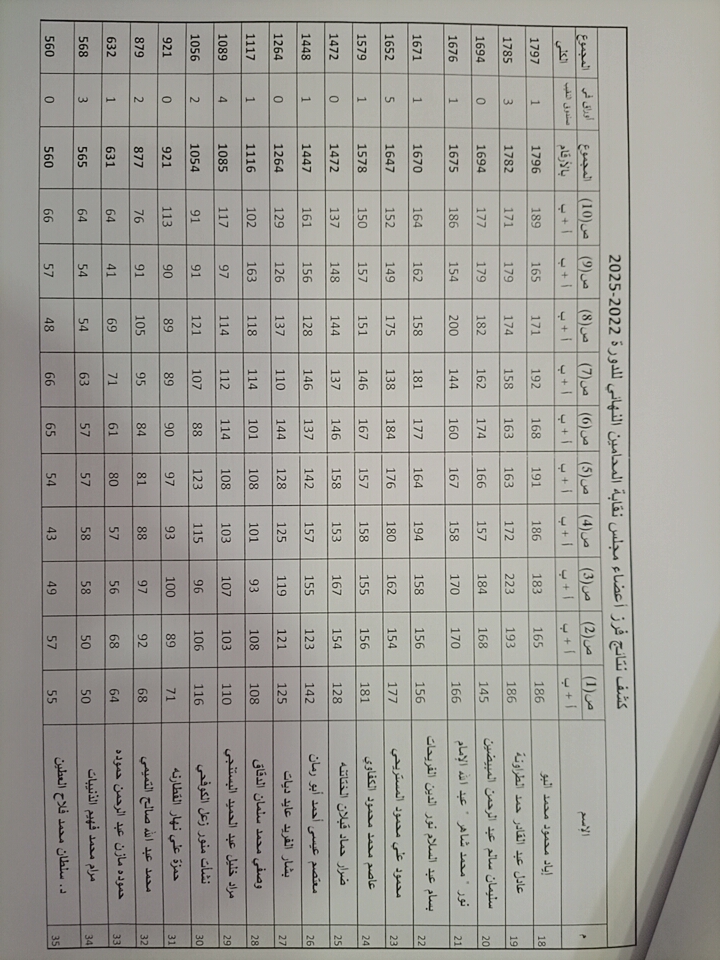 كشف نتائج فرز أعضاء مجلس نقابة المحامين النهائي للدورة 2022-2025
م الإسم ص(1) أ + ب ص(2) أ + ب ص(3) أ + ب ص(4) أ + ب ص(5) أ + ب ص(6) أ + ب ص(7) أ + ب ص(8) أ + ب ص(9) أ + ب ص(10) أ + ب المجموع بالأرقام أوراق في صندوق النقيب المجموع الكلي
18 إياد محمود محمد البو 186 165 183 186 191 168 192 171 165 189 1796 1 1797
19 عادل عبد القادر حمد الطراونة 186 193 223 172 163 163 158 174 179 171 1782 3 1785
20 سليمان سالم عبد الرحمن المبيضين 145 168 184 157 166 174 162 182 179 177 1694 0 1694
21 نور " محمد شاهر " عبد الله الإمام 166 170 170 158 167 160 144 200 154 186 1675 1 1676
22 بسام عبد السلام نور الدين الفريحات 156 156 158 194 164 177 181 158 162 164 1670 1 1671
23 محمود علي محمود المستريحي 177 154 162 180 176 184 138 175 149 152 1647 5 1652
24 عاصم محمد محمود الكفاوي 181 156 155 158 157 167 146 151 157 150 1578 1 1579
25 ضرار حماد قبلان الختاتنه 128 154 167 153 158 146 137 144 148 137 1472 0 1472
26 معتصم عيسى أحمد أبو رمان 142 123 155 157 142 137 146 128 156 161 1447 1 1448
27 بشار الفريد عايد ديات 125 121 119 125 128 144 110 137 126 129 1264 0 1264
28 وصفي محمد سلمان الدقاق 108 108 93 101 108 101 114 118 163 102 1116 1 1117
29 مراد خليل عبد الحميد البستنجي 110 103 107 103 108 114 112 114 97 117 1085 4 1089
30 نشات منور زعل الكوفحي 116 106 96 115 123 88 107 121 91 91 1054 2 1056
31 حمزة علي نهار القطارنه 71 89 100 93 97 90 89 89 90 113 921 0 921
32 محمد عبد الله صالح التميمي 68 92 97 88 81 84 95 105 91 76 877 2 879
33 حموده مازن عبد الرحمن حموده 64 68 56 57 80 61 71 69 41 64 631 1 632
34 مرام محمد فهيم الذنيبات 50 50 58 58 57 57 63 54 54 64 565 3 568
35 د. سلطان محمد فلاح العطين 55 57 49 43 54 65 66 48 57 66 560 0 560